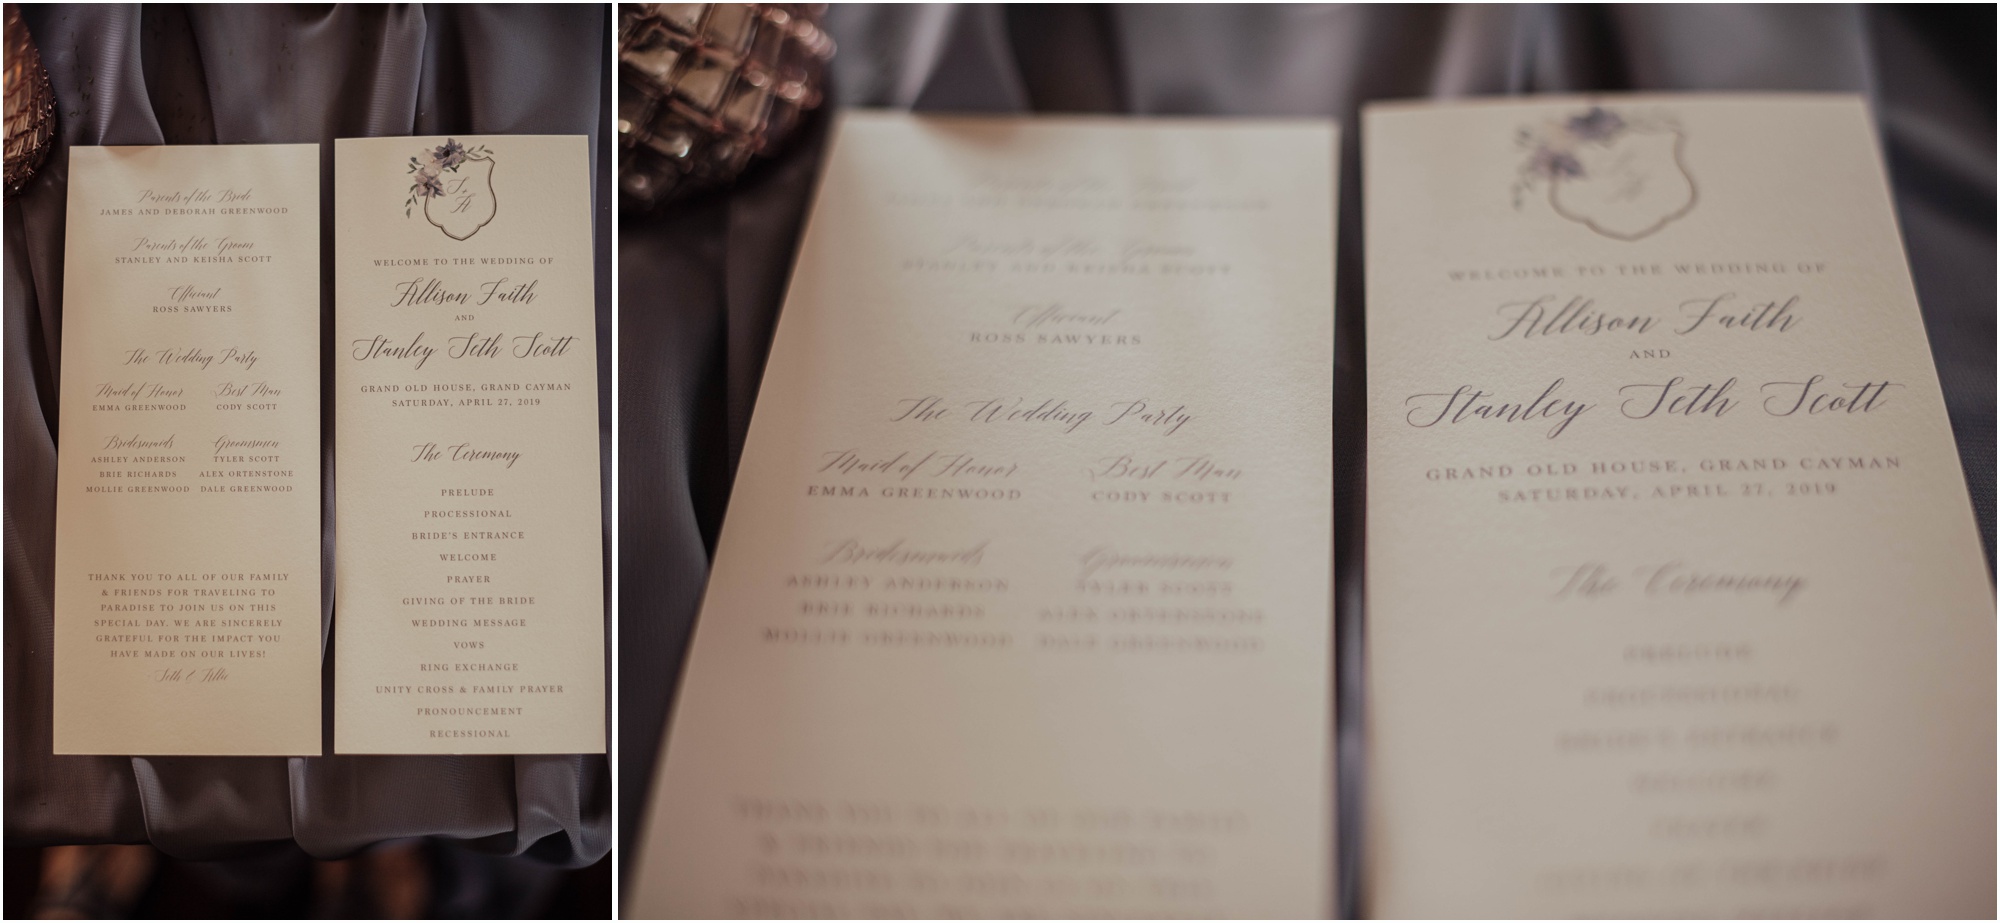 Parents of the Bride
JAMES AND DEBORAH GREENWOOD
Parents of the Groom
STANLEY AND KEISHA SCOTT
Officiant
ROSS SAWYERS
The Wedding Party
Maid of Honor
EMMA GREENWOOD
Best Man
CODY SCOTT
Bridesmaids
ASHLEY ANDERSON
BRIE RICHARDS
MOLLIE GREENWOOD
Groomsmen
TYLER SCOTT
ALEX ORTENSTONE
DALE GREENWOOD
THANK YOU TO ALL OF OUR FAMILY
& FRIENDS FOR TRAVELING TO
PARADISE TO JOIN US ON THIS
SPECIAL DAY. WE ARE SINCERELY
GRATEFUL FOR THE IMPACT YOU
HAVE MADE ON OUR LIVES!
- Seth & Allie
S
+
A
WELCOME TO THE WEDDING OF
Allison Faith
AND
Stanley Seth Scott
GRAND OLD HOUSE, GRAND CAYMAN
SATURDAY, APRIL 27, 2019
The Ceremony
PRELUDE
PROCESSIONAL
BRIDE'S ENTRANCE
WELCOME
PRAYER
GIVING OF THE BRIDE
WEDDING MESSAGE
VOWS
RING EXCHANGE
UNITY CROSS & FAMILY PRAYER
PRONOUNCEMENT
RECESSIONAL
Parents of the Groom
STANLEY AND KEISHA SCOTT
Officiant
ROSS SAWYERS
The Wedding Party
Maid of Honor
EMMA GREENWOOD
Best Man
CODY SCOTT
Bridesmaids
ASHLEY ANDERSON
BRIE RICHARDS
MOLLIE GREENWOOD
Groomsmen
TYLER SCOTT
ALEX ORTENSTONE
DALE GREENWOOD
WELCOME TO THE WEDDING OF
Allison Faith
AND
Stanley Seth Scott
GRAND OLD HOUSE, GRAND CAYMAN
SATURDAY, APRIL 27, 2019
The Ceremony